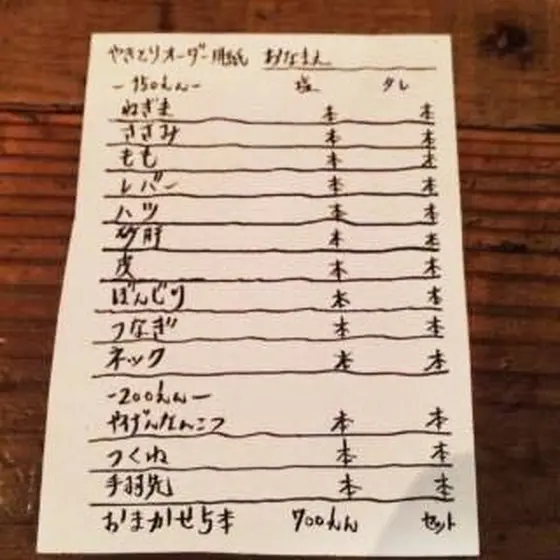 やきとりオーダー用紙 おなまえ
-150えん- 塩 タレ
ねぎま 本 本
ささみ 本 本
もも 本 本
レバー 本 本
ハツ 本 本
砂肝 本 本
皮 本 本
ぼんじり 本 本
つなぎ 本 本
ネック 本 本
-200えん-
やげんなんこつ 本 本
つくね 本 本
手羽先 本 本
おまかせ5本 700えん セット